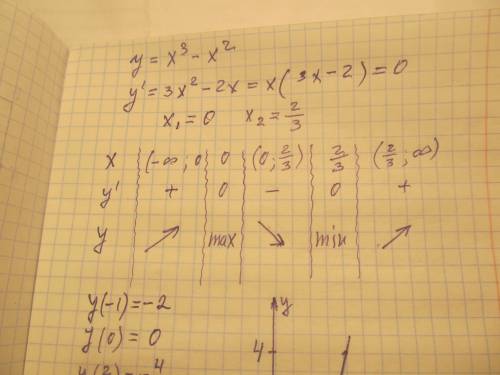 y = x³ - x²
y' = 3x² - 2x = x(3x - 2) = 0
x₁ = 0 x₂ = 2/3
x (-∞; 0 0 (0; 2/3) 2/3 (2/3; ∞)
y' + 0 - 0 +
y ↗ max ↘ min ↗
y(-1) = -2
y(0) = 0
y
4